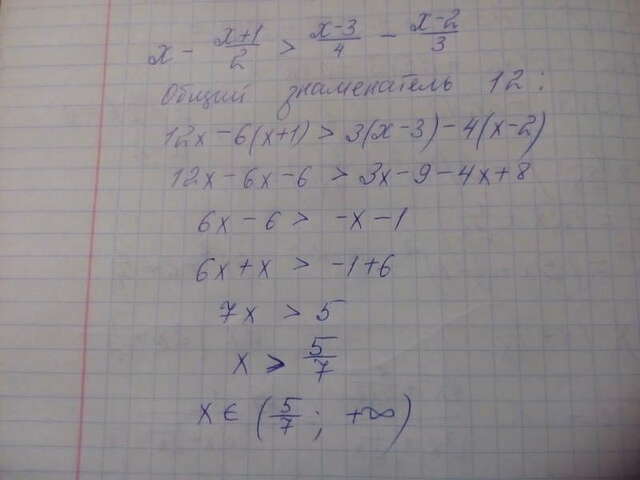 x - \frac{x+1}{2} > \frac{x-3}{4} - \frac{x-2}{3}
Общий знаменатель 12:
12x - 6(x+1) > 3(x-3) - 4(x-2)
12x - 6x - 6 > 3x - 9 - 4x + 8
6x - 6 > -x - 1
6x + x > -1 + 6
7x > 5
x > \frac{5}{7}
x ∈ (\frac{5}{7}; +∞)